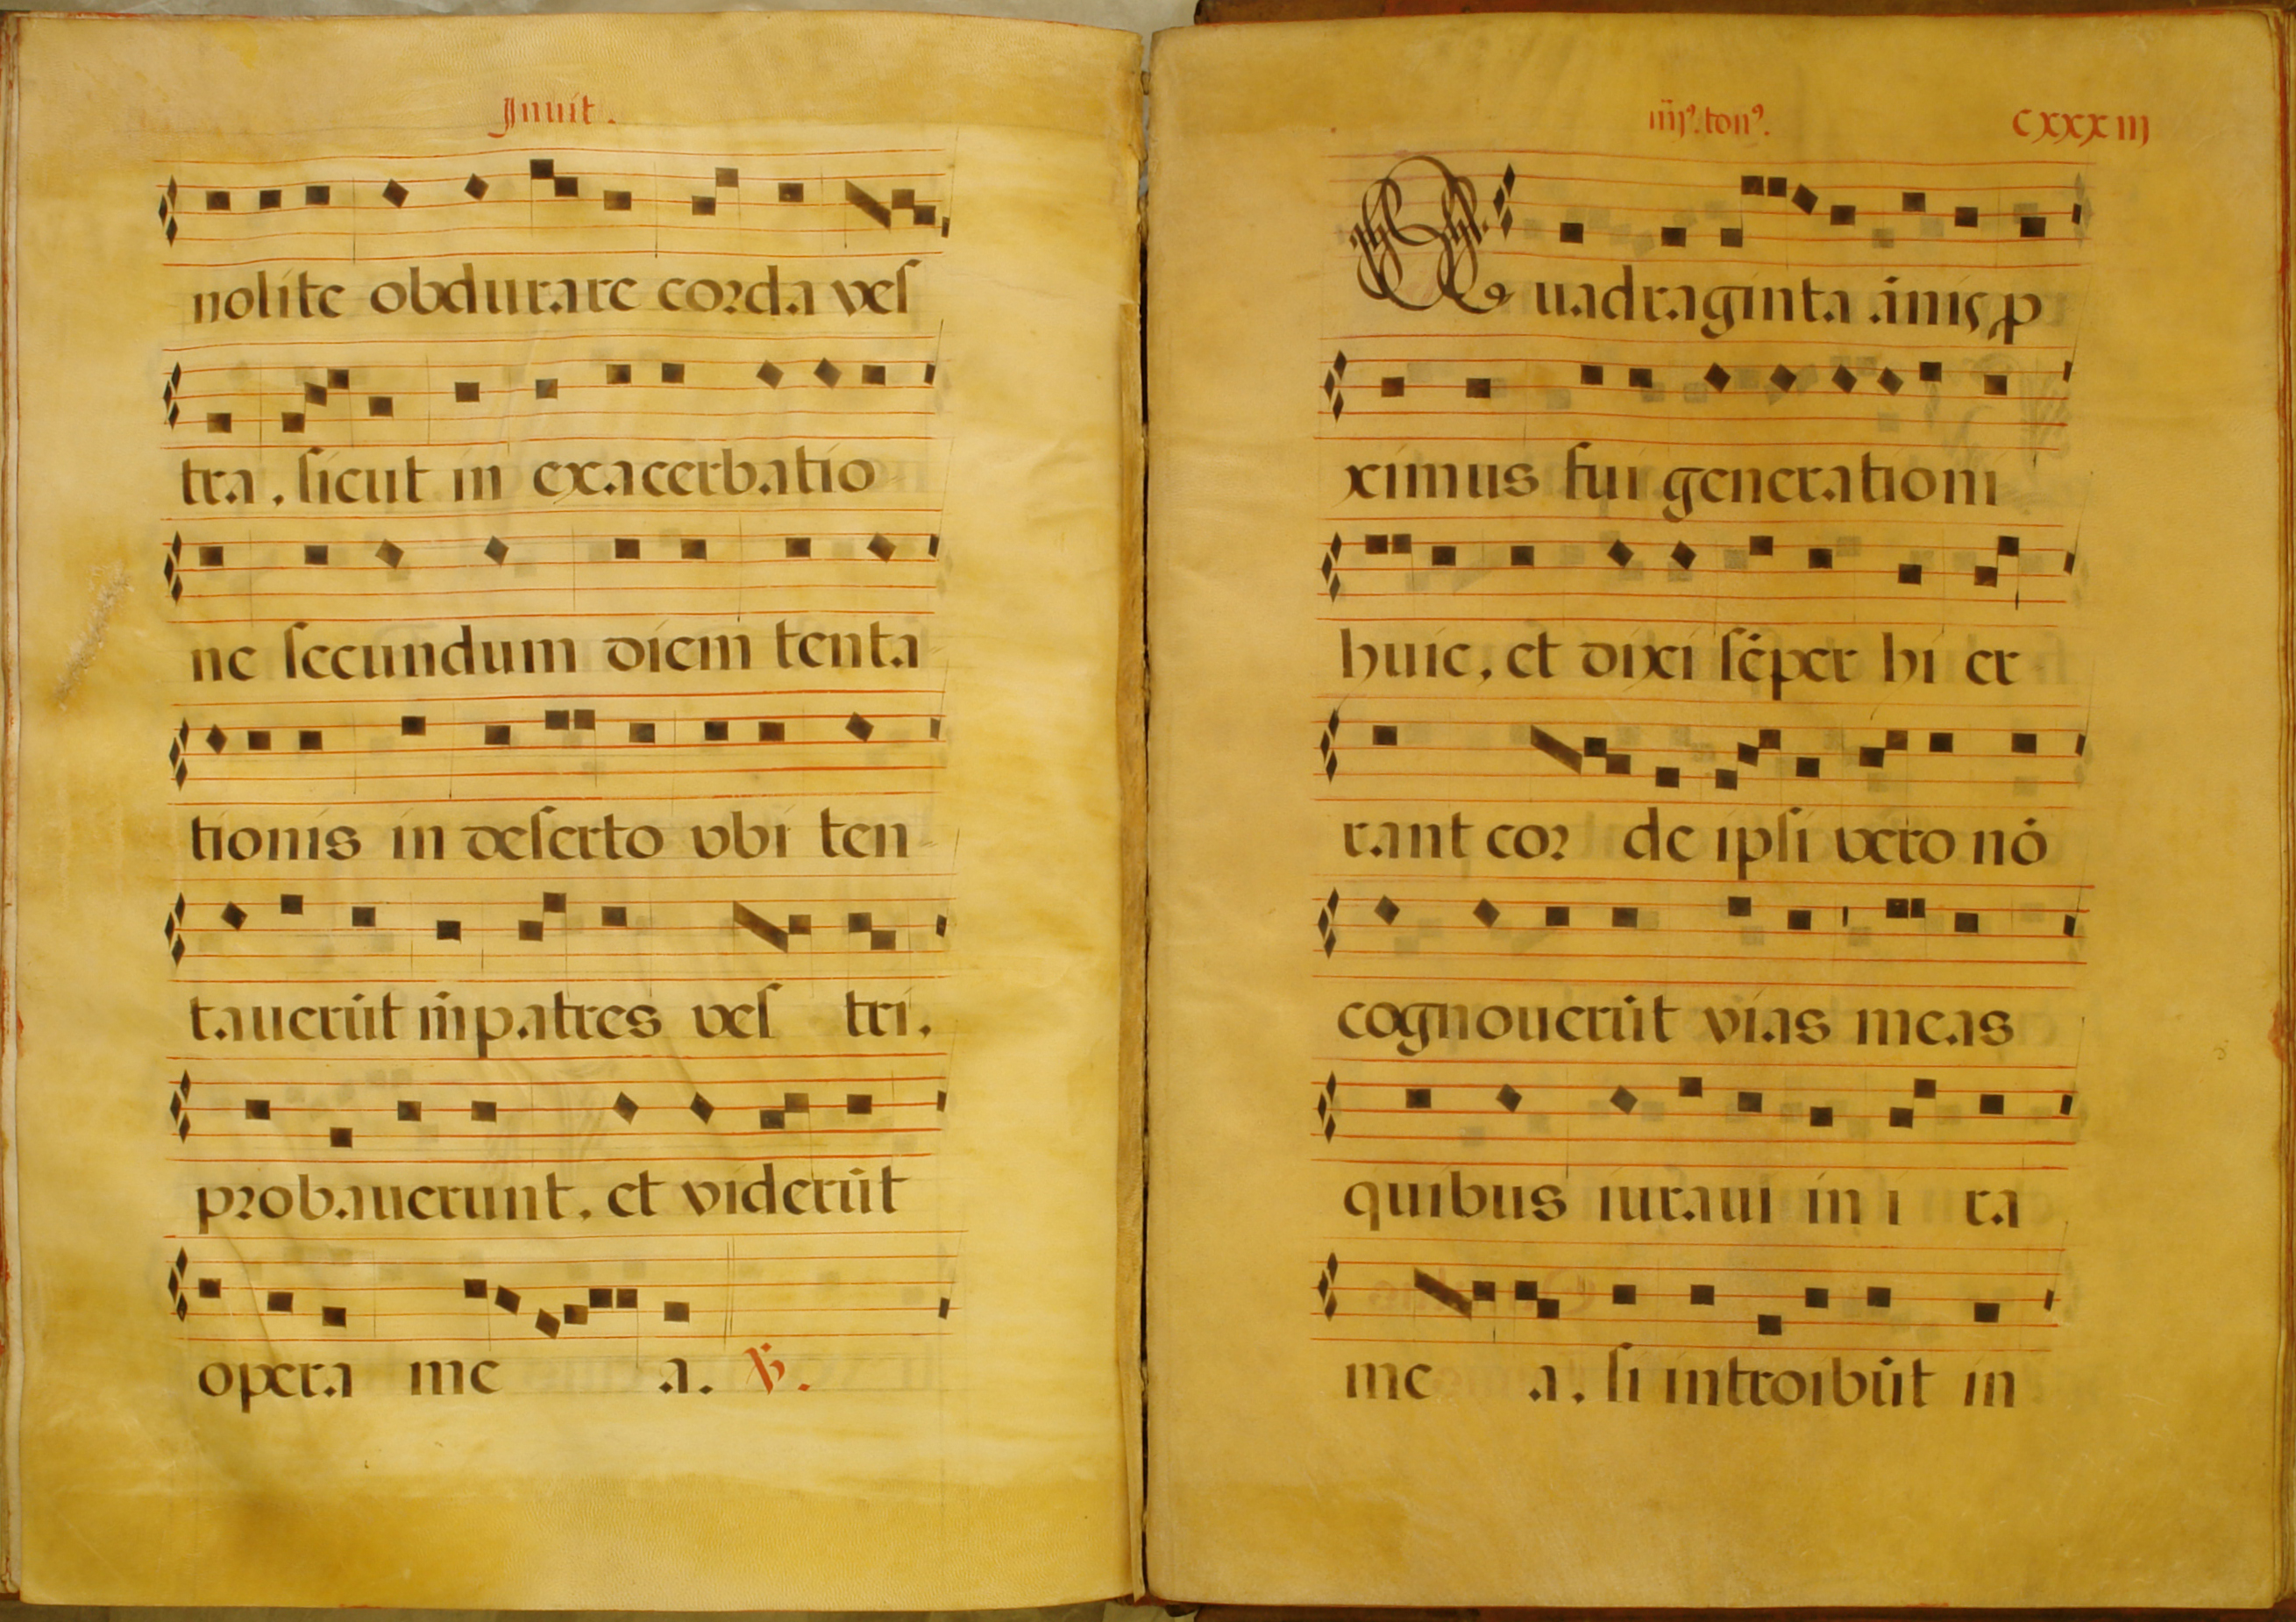 Inuit.
nolite obdurare corda ves
tra. sicut in exacerbatio
ne secundum diem tenta
tionis in deserto vbi ten
tauerūt m̄ patres ves tri.
probauerunt. et viderūt
opera me a. ℣.
iiij⁹. ton⁹. cxxxiij
Quadraginta ānis ꝓ
ximus fui generationi
huic. et dixi sēper hi er
rant cor de ipsi vero nō
cognouerūt vias meas
quibus iuraui in i ra
me a. si introibūt in